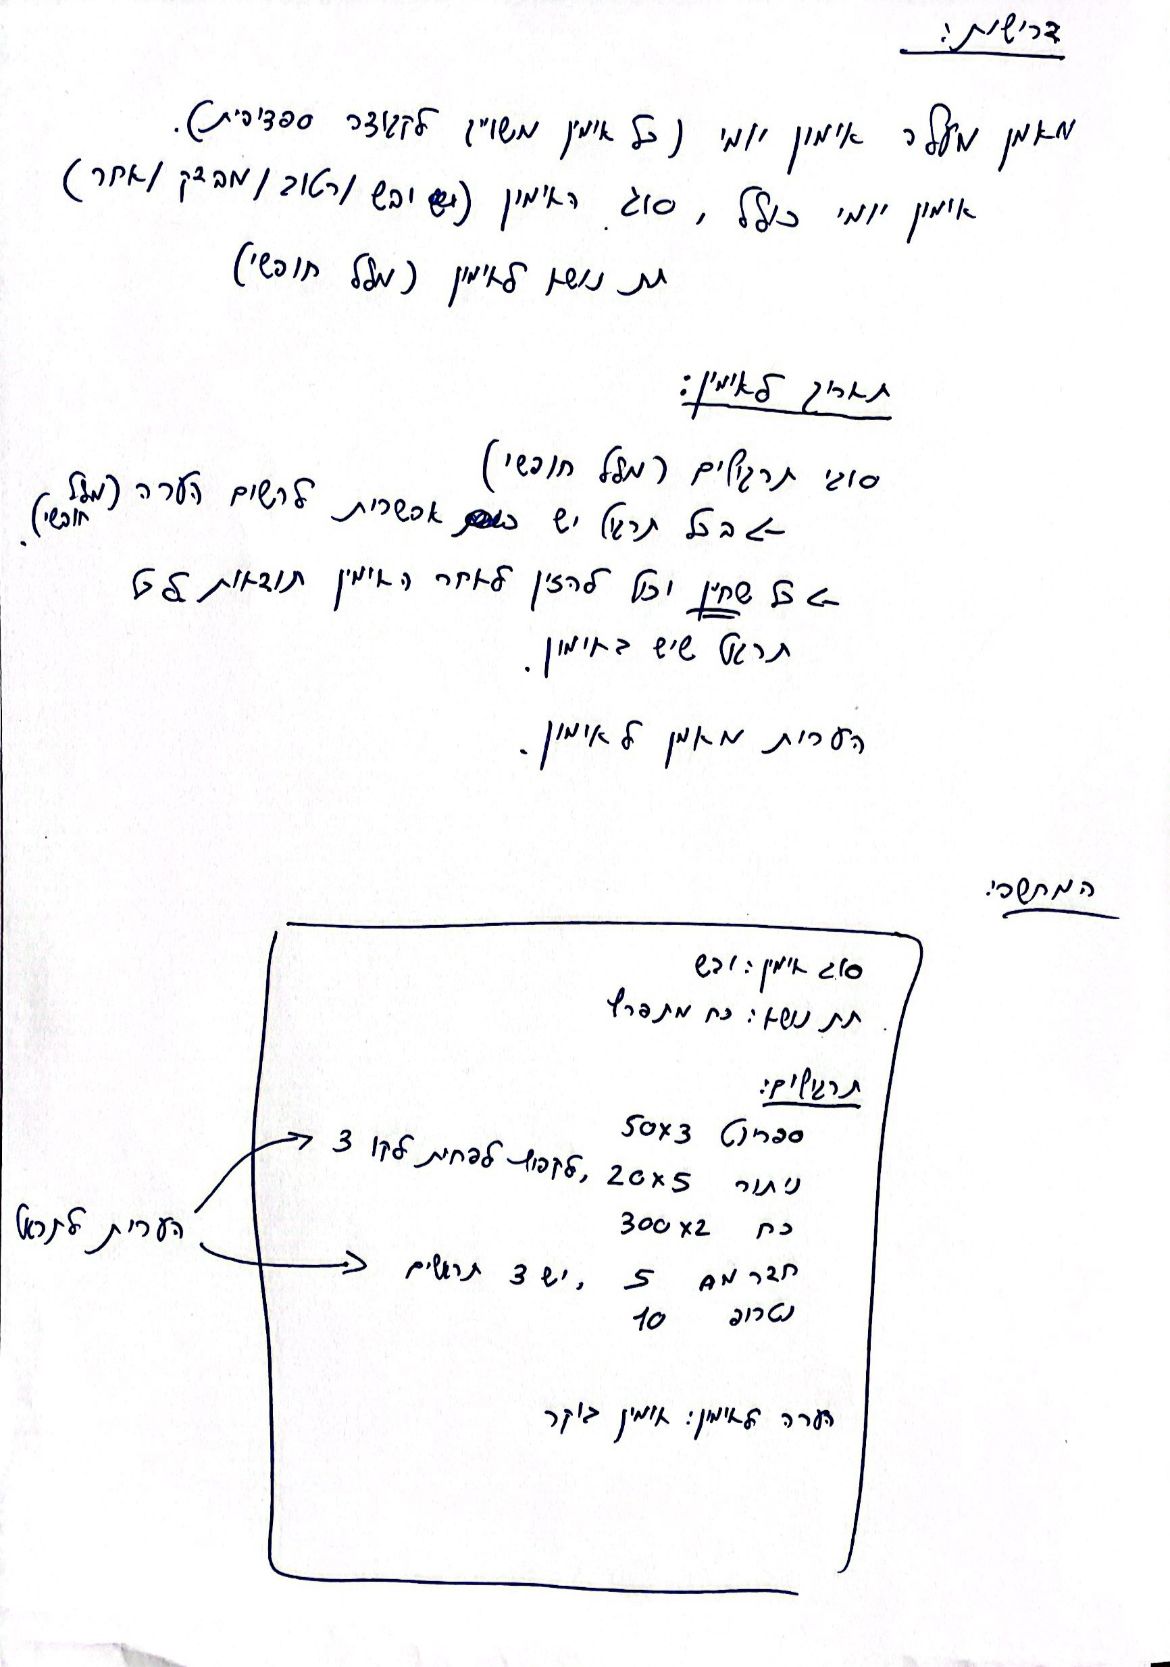 דרישות:
מאמן מעלה אימון יומי (כל אימון משוייך לקבוצה ספציפית).
אימון יומי כולל, סוג האימון (יבש /רטוב /מבדק /אחר)
תת נושא לאימון (מלל חופשי)
תאריך לאימון:
סוגי תרגילים (מלל חופשי)
בכל תרגיל יש אפשרות לרשום הערה (מלל חופשי).
כל שחיין יכול להזין לאחר האימון תוצאות לכל
תרגיל שיש באימון.
הערות מאמן לאימון.
המחשה:
סוג אימון: יבש
תת נושא: כח מתפרץ
תרגילים:
ספרינט 50x3
ניתור 20x5, לקפוץ לפחות לקו 3
כח 300x2
חבר מת 5, יש 3 תרגילים
10
הערה לאימון: אימון בוקר
הערות לתרגיל